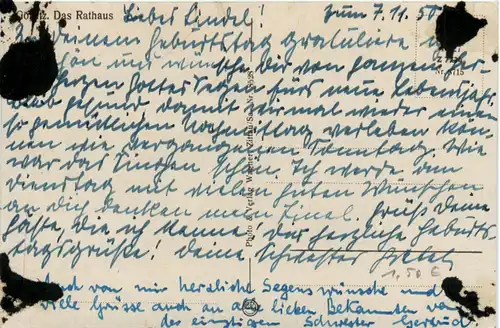 Görlitz. Das Rathaus
Liebes Lindel! zum 7.11.50
Zu deinem Geburtstag gratuliere ich
schön und wünsche dir von ganzem
Herzen Gottes Segen fürs neue Lebensjahr.
gesund damit wir mal wieder einen
so gemütlichen Nachmittag verleben kön-
nen wie vergangenen Sonntag. Wie
war das Singen schön. Ich werde am
Dienstag mit vielen guten Wünschen
an dich denken mein Lindel. Grüß deine
Gäste, die ich kenne. herzliche Geburts
tagsgrüße! deine Schwester
1,50 €
Auch von mir herzliche Segenswünsche und
viele Grüsse auch an alle lieben Bekannten von
der einstigen Schwester Gertrud
Photo u. Verlag Wagner, Zittau/Sa.